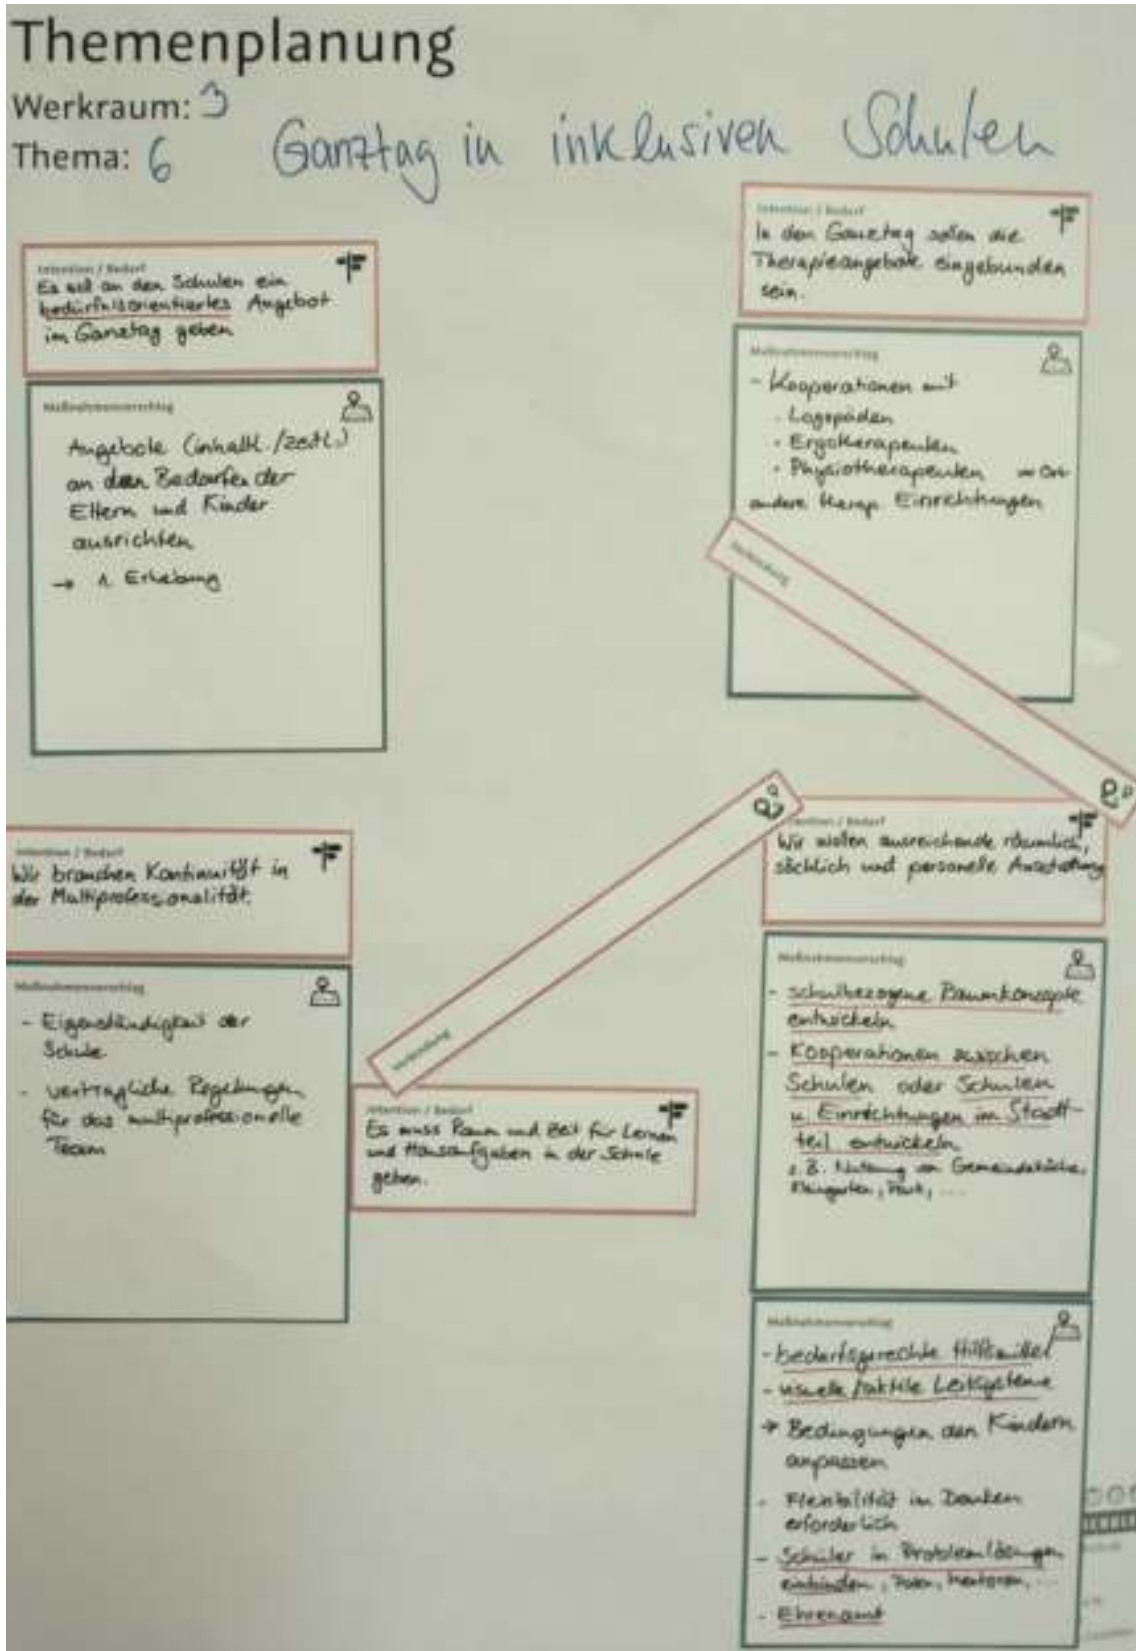 Themenplanung
Werkraum: 3
Thema: 6 Ganztag in inklusiven Schulen
Intention / Bedarf
Es soll an den Schulen ein
bedürfnisorientiertes Angebot
im Ganztag geben
Maßnahmenvorschlag
Angebote (inhaltl./zeitl.)
an den Bedarfen der
Eltern und Kinder
ausrichten
→ 1. Erhebung
Intention / Bedarf
In den Ganztag sollen die
Therapieangebote eingebunden
sein.
Maßnahmenvorschlag
- Kooperationen mit
• Logopäden
• Ergotherapeuten
• Physiotherapeuten
andere therap. Einrichtungen
Verbindung
Intention / Bedarf
Wir brauchen Kontinuität in
der Multiprofessionalität.
Maßnahmenvorschlag
- Eigenständigkeit der
Schule
- vertragliche Regelungen
für das multiprofessionelle
Team
Verbindung
Intention / Bedarf
Es muss Raum und Zeit für Lernen
und Hausaufgaben in der Schule
geben.
Intention / Bedarf
Wir wollen ausreichende räumlich,
sächlich und personelle Ausstattung
Maßnahmenvorschlag
- schulbezogene Raumkonzepte
entwickeln
- Kooperationen zwischen
Schulen oder Schulen
u. Einrichtungen im Stadt-
teil entwickeln
z.B. Nutzung von Gemeindeküche,
Kleingarten, Park, ...
Maßnahmenvorschlag
- bedarfsgerechte Hilfsmittel
- visuelle/taktile Leitsysteme
→ Bedingungen den Kindern
anpassen
- Flexibilität im Denken
erforderlich
- Schüler in Problemlösungen
einbinden, Paten, Mentoren, ...
- Ehrenamt